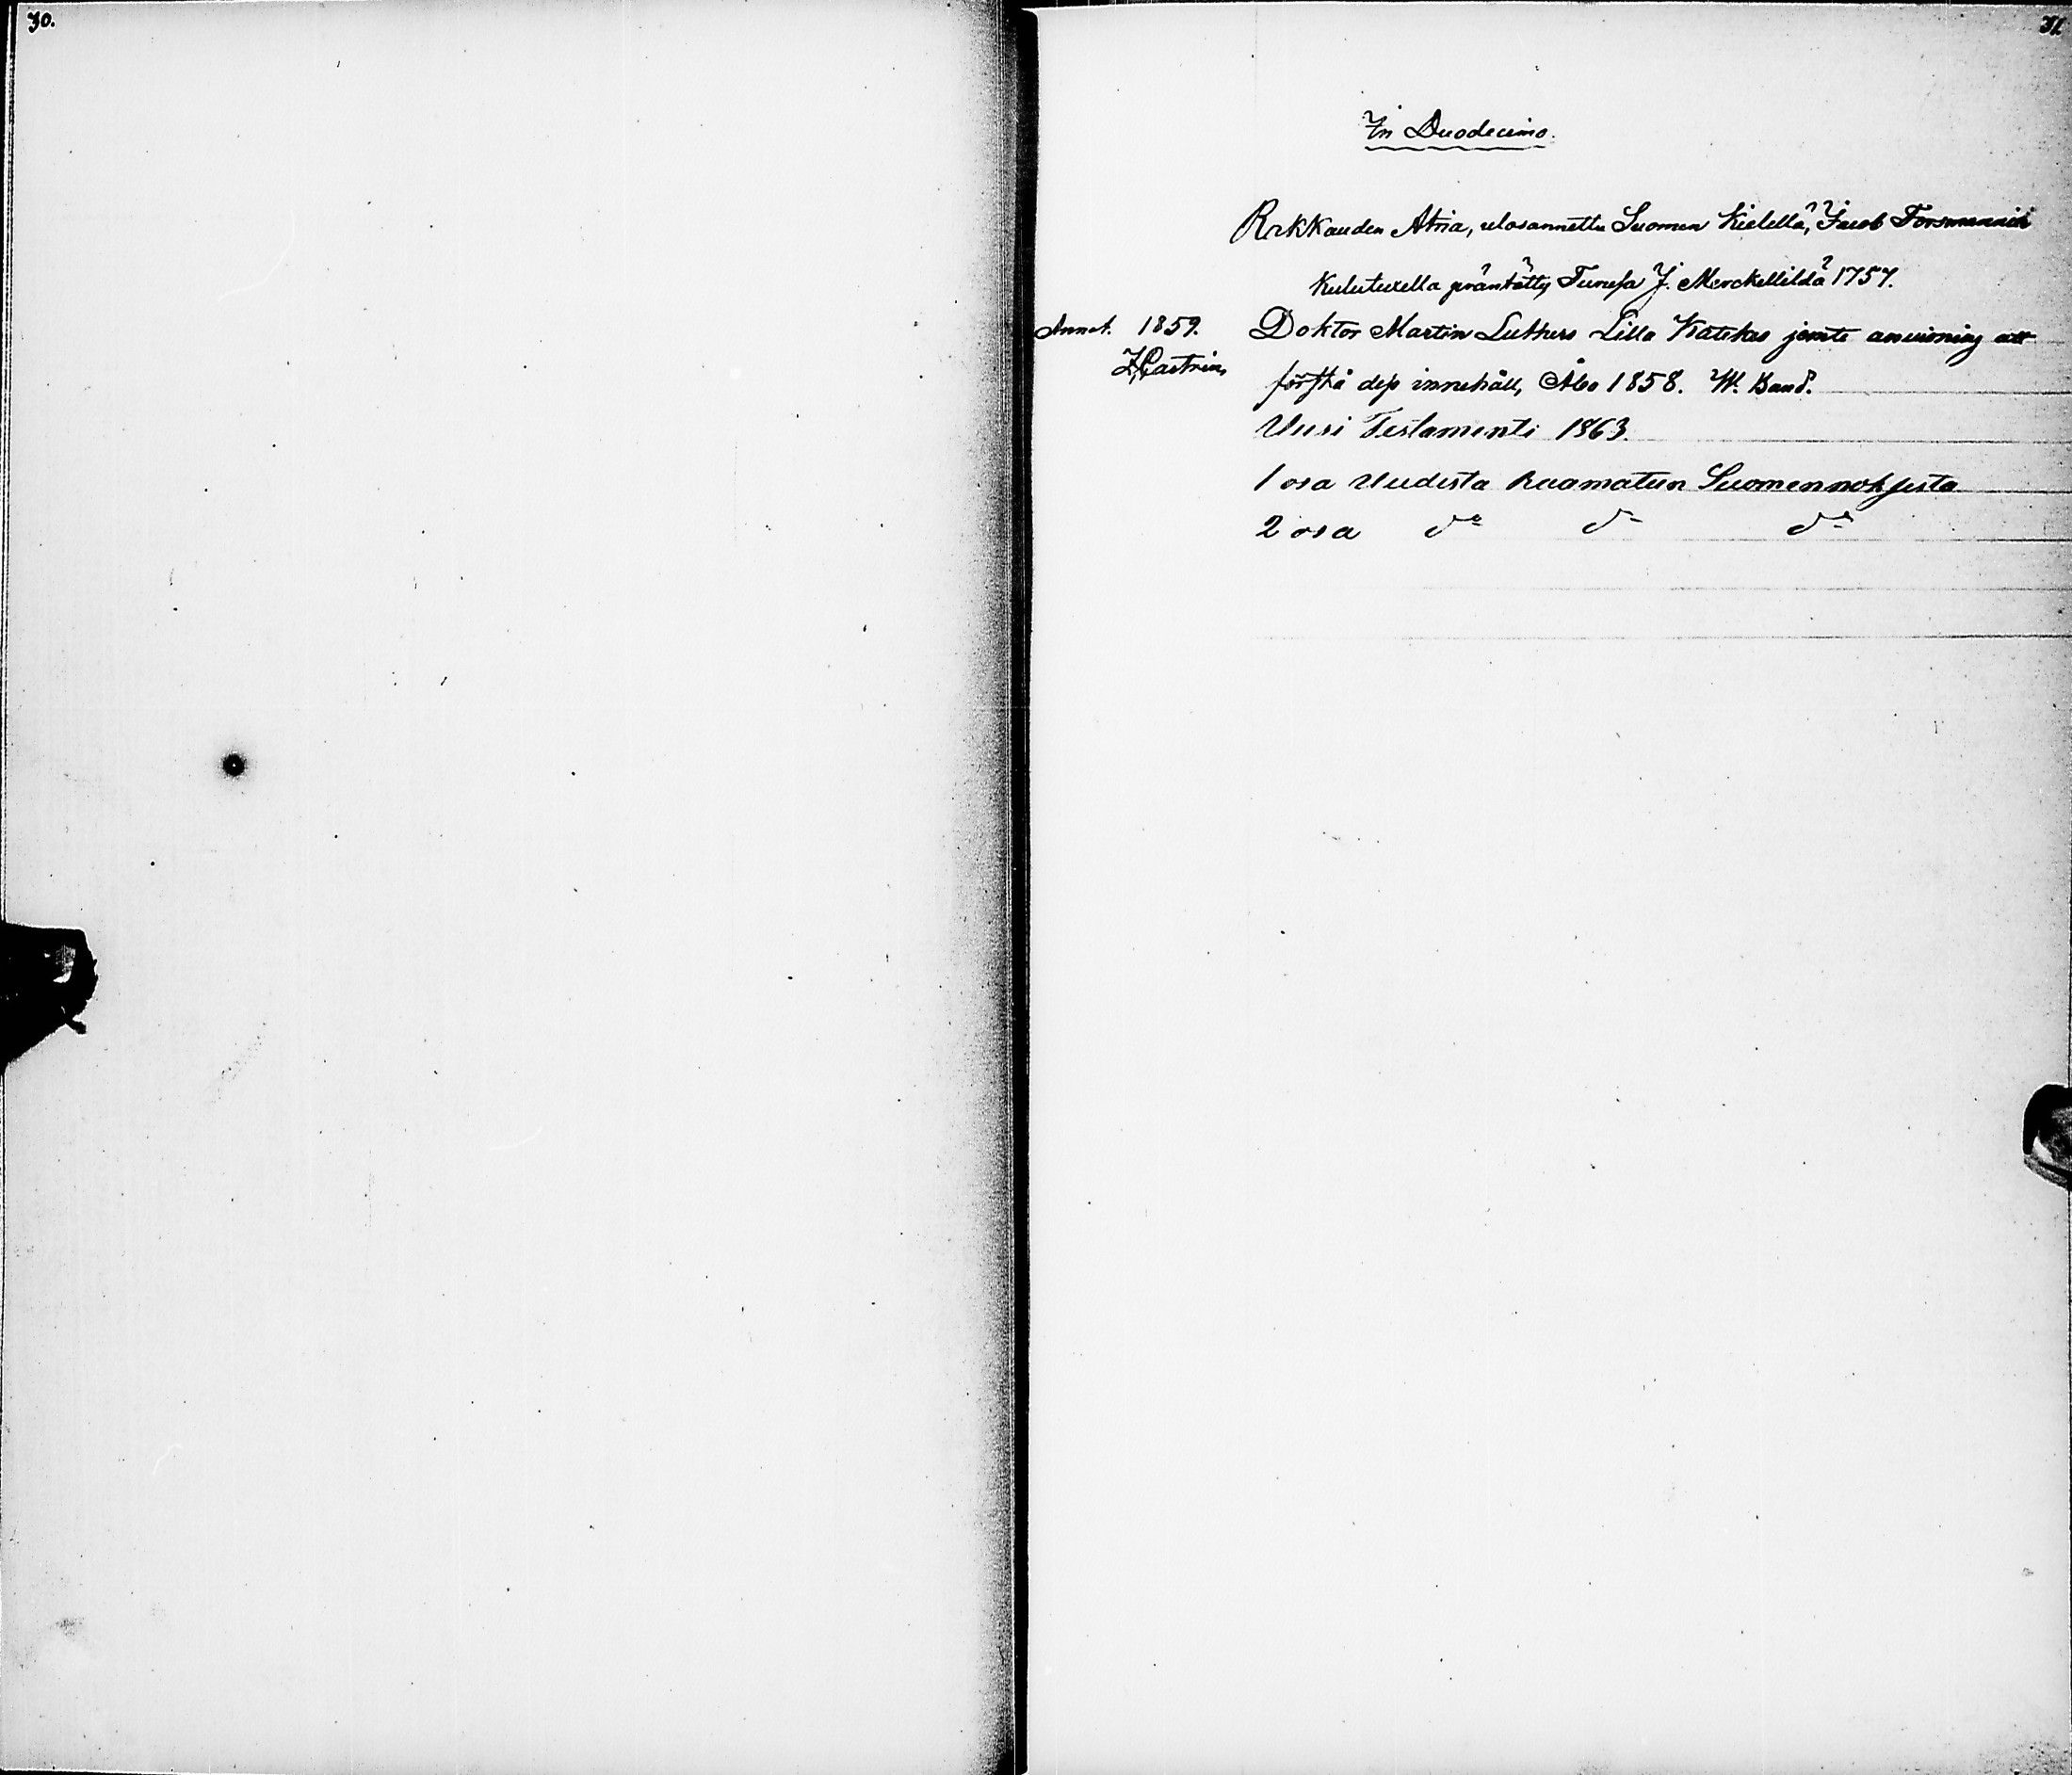 30.
31
In Duodecimo.
Rakkauden Atria, ulosannettu Suomen Kielellä, Jacob Forsmannin
Kulutuxella präntätty Turusa J. Merckellildä 1757.
Annot. 1859. Doktor Martin Luthers Lilla Katekes jemte anvisning att
Z. Castrén, förstå dess innehåll, Åbo 1858. W. Band.
Uusi Testamenti 1863.
1 osa Uudesta Raamatun Suomennoksesta
2 osa do do do